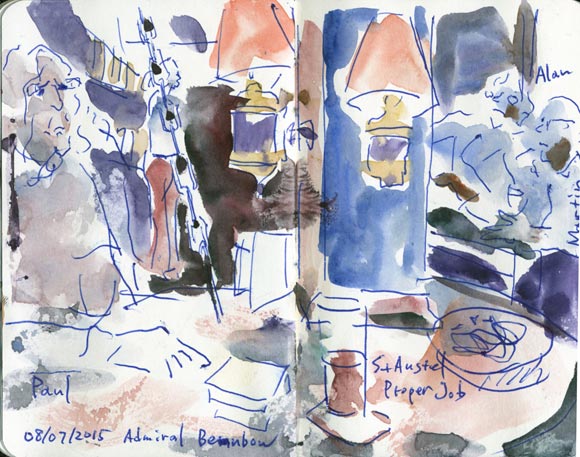 Alan
St Austel
Proper Job
Paul
08/07/2015 Admiral Benbow